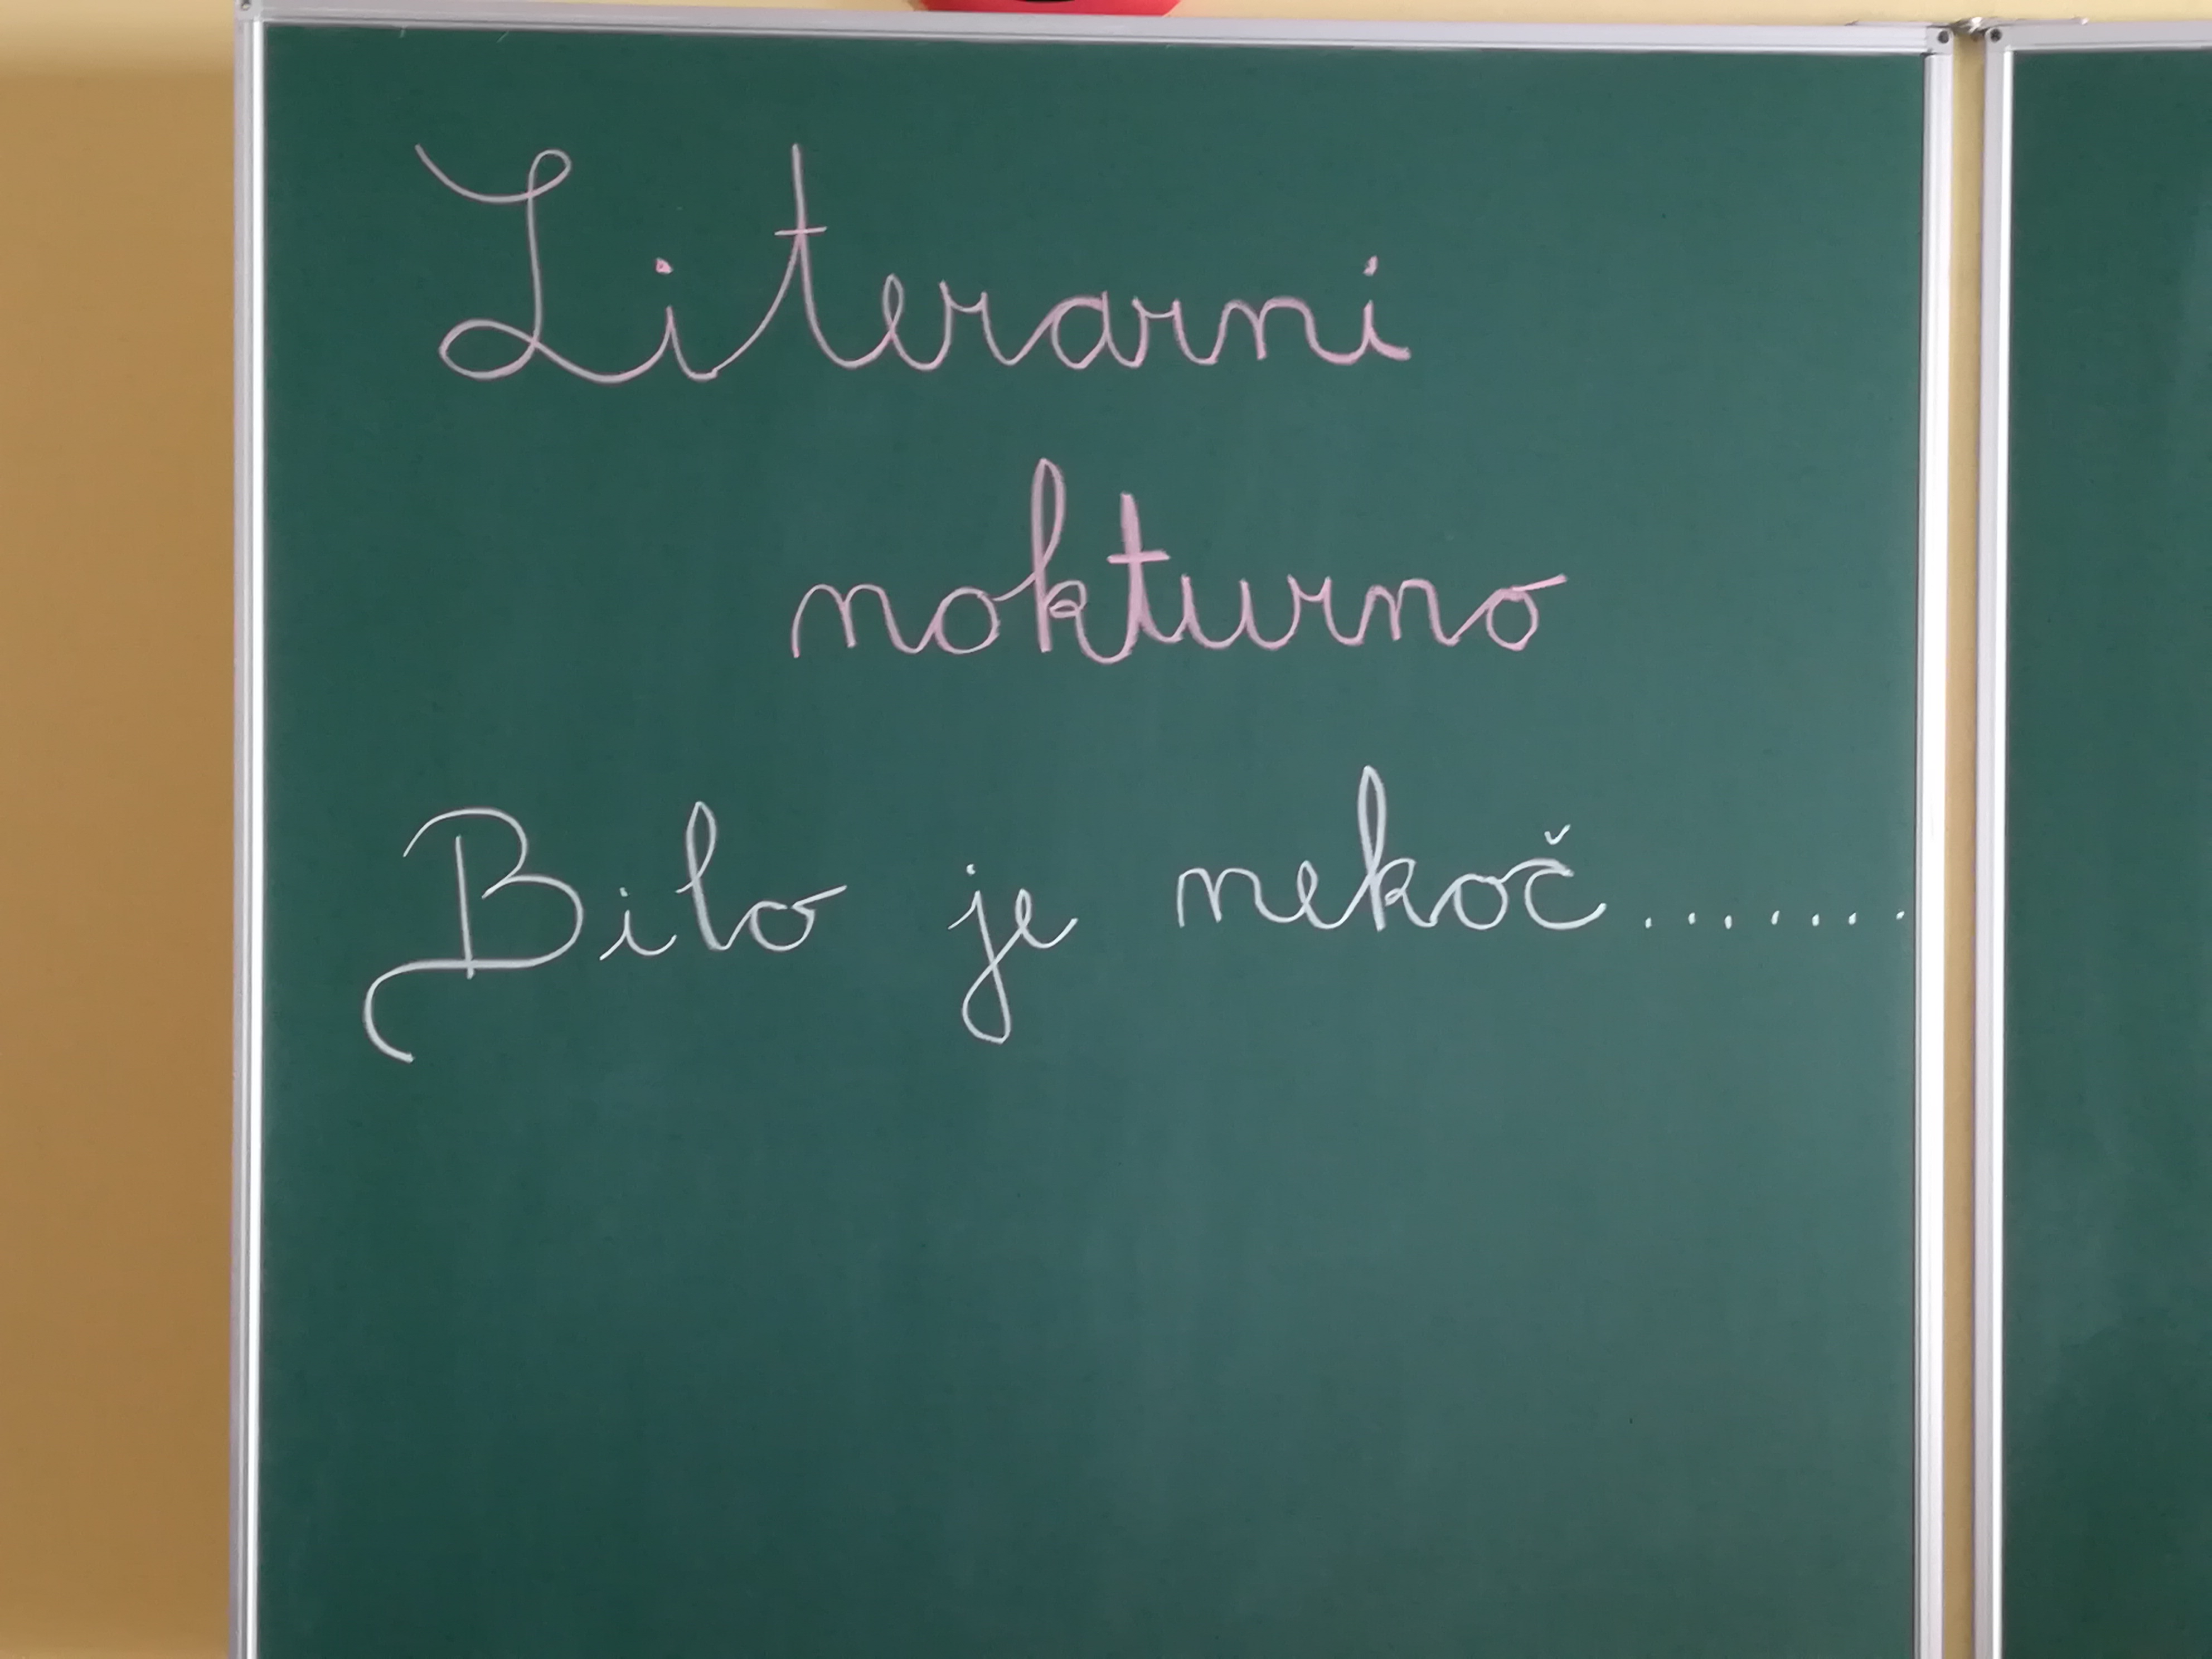 Literarni
nokturno
Bilo je nekoč........